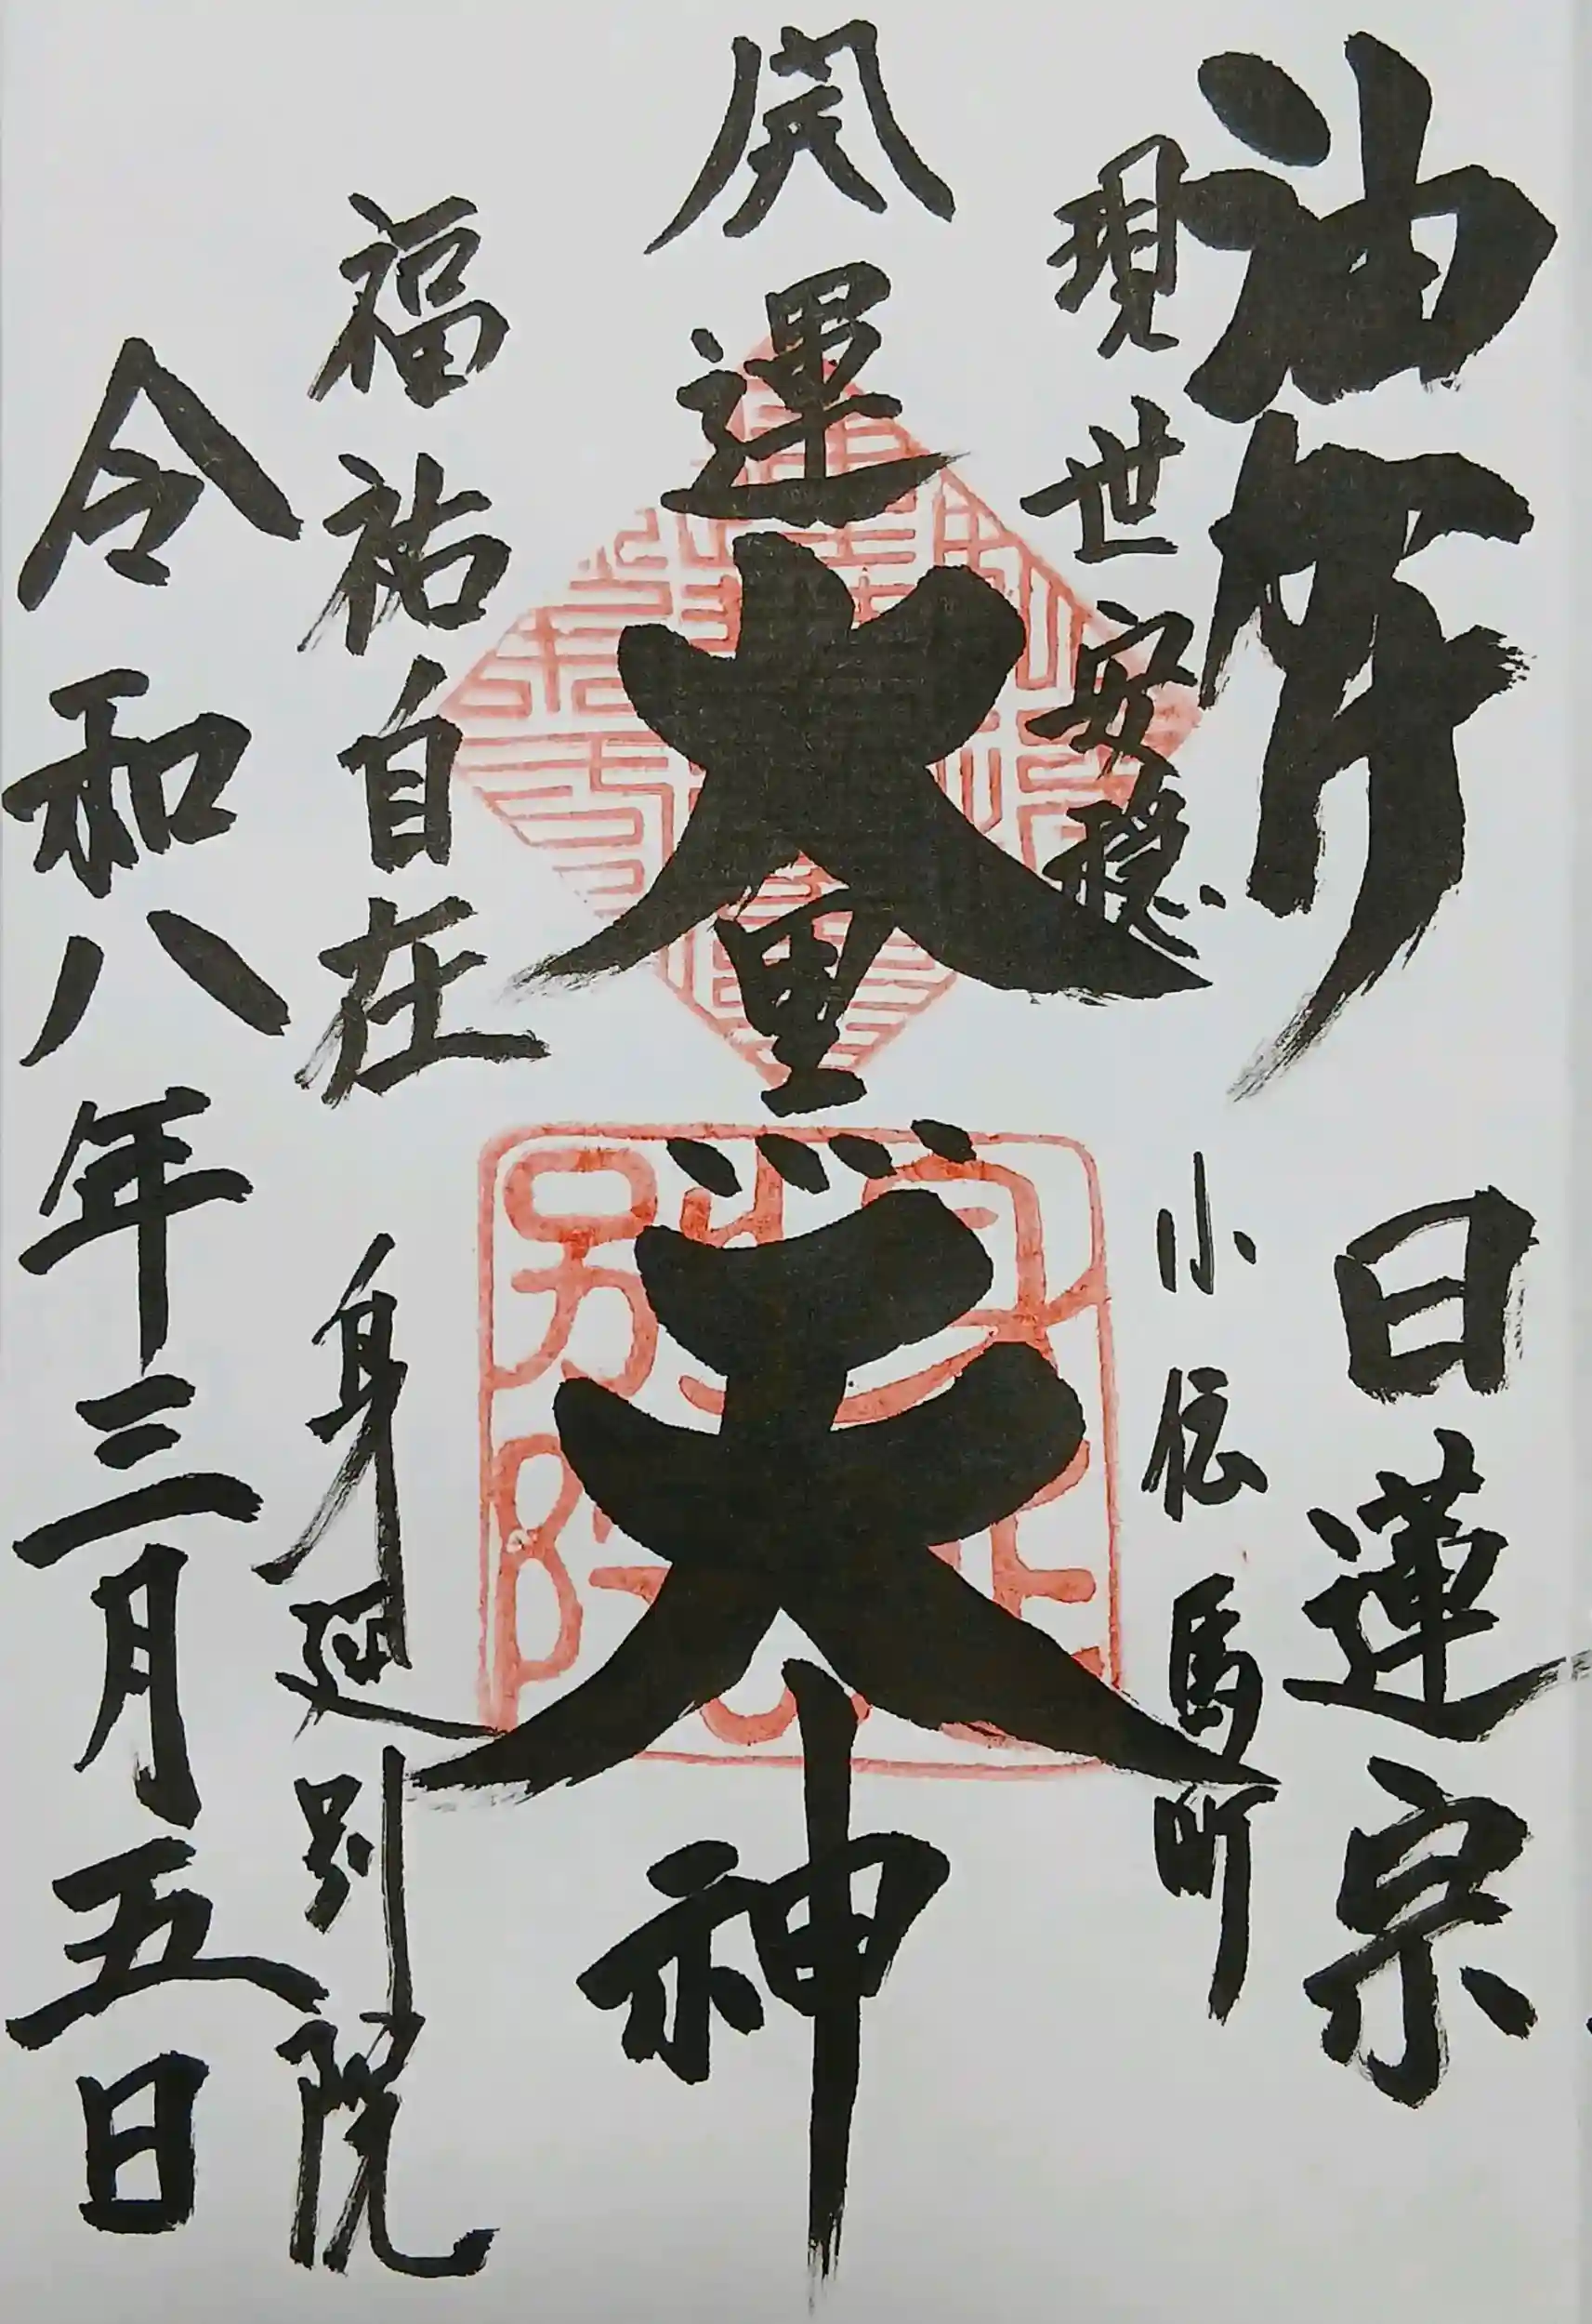 油かけ
日蓮宗
現世安穏
小伝馬町
開運大黒天神
福祐自在
身延別院
令和八年三月五日
身延別院